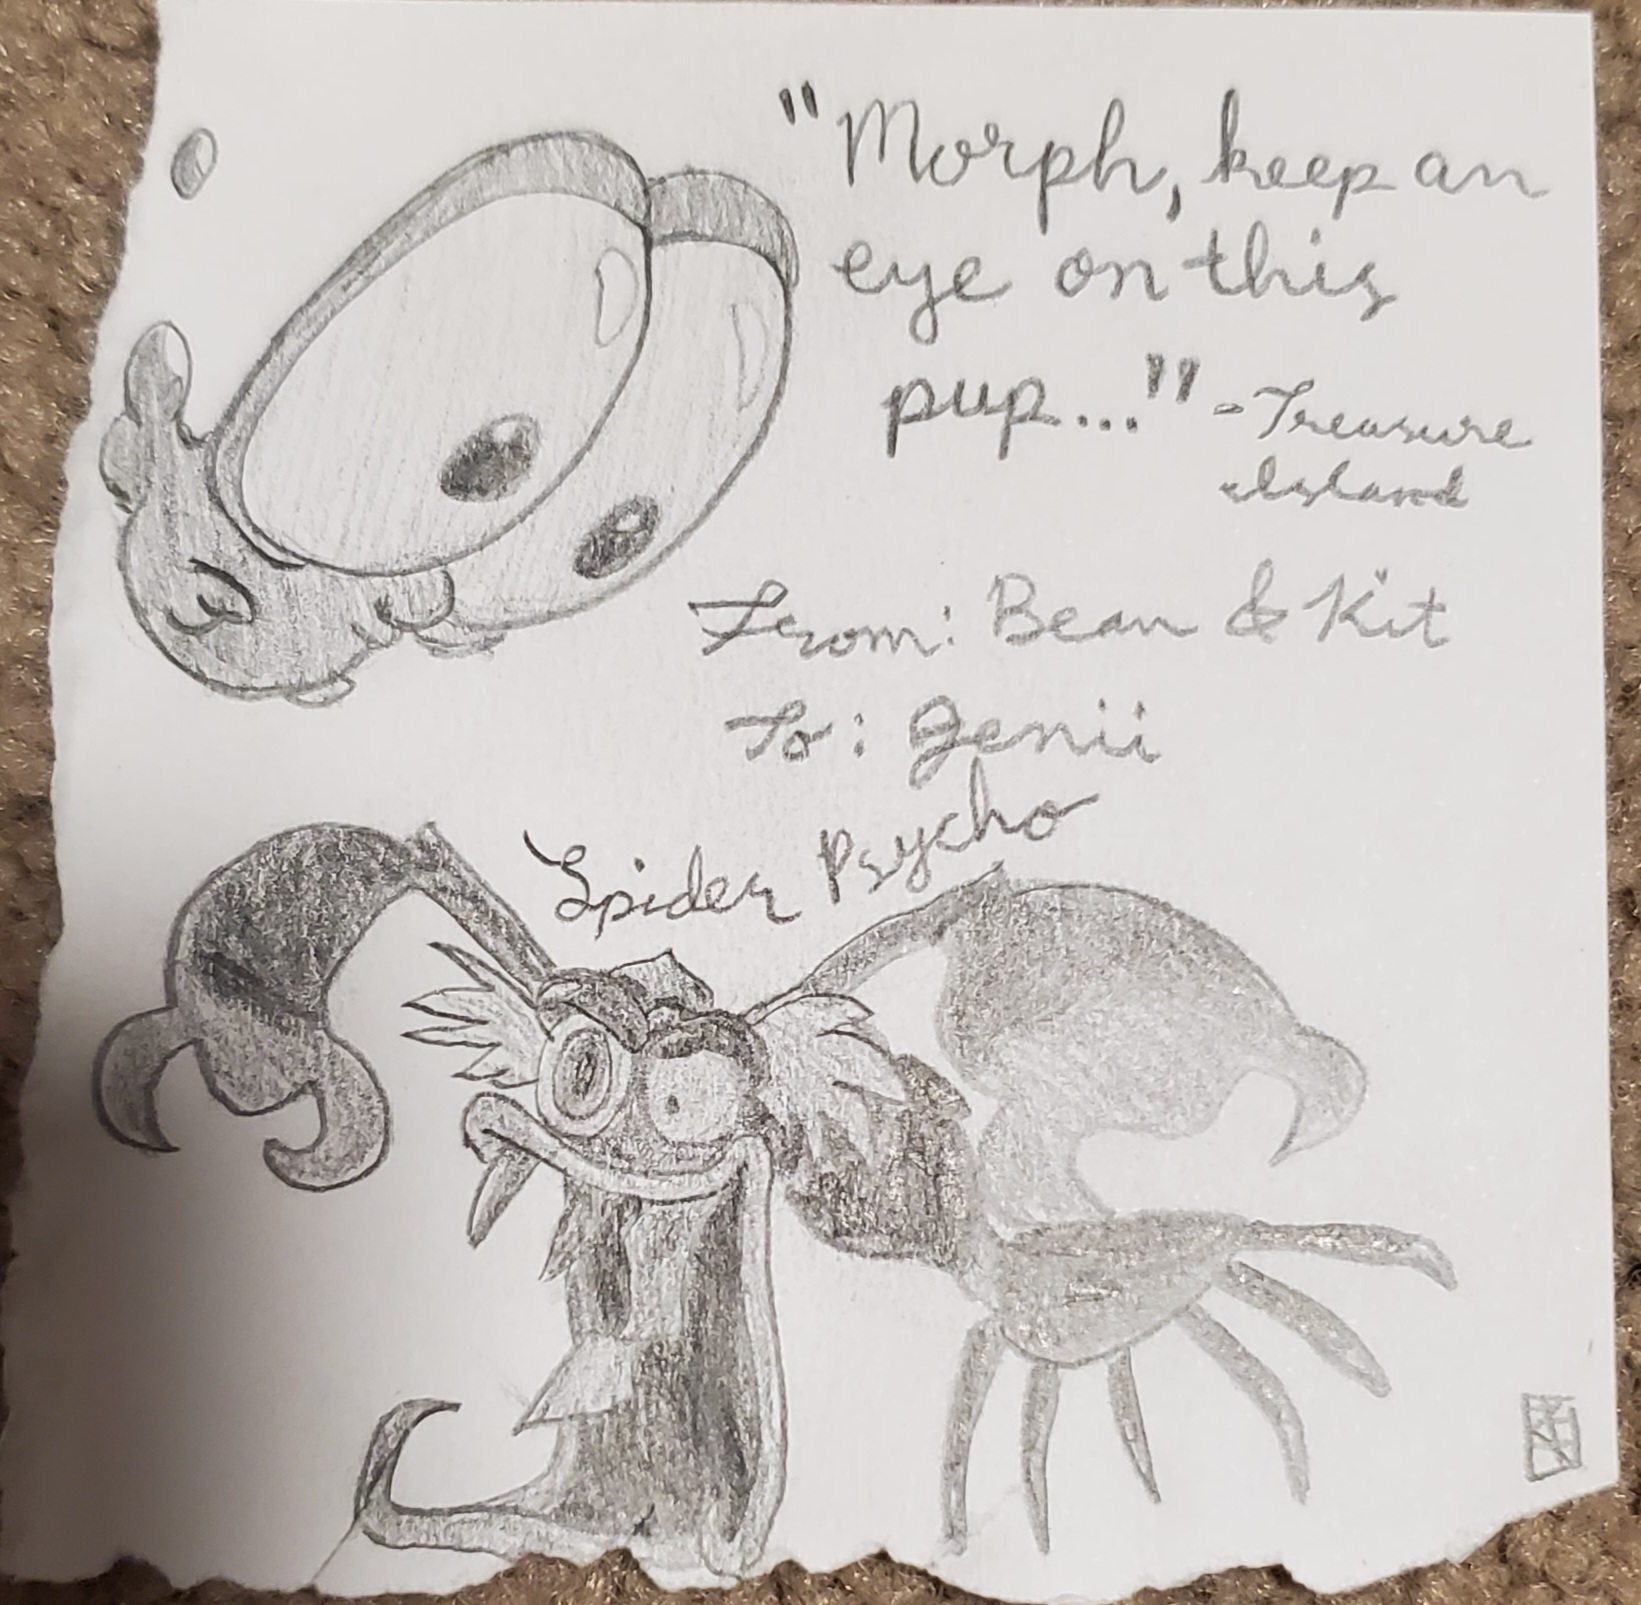 "Morph, keep an
eye on this
pup..." - Treasure
Island
From: Bean & Kit
To: Genii
Spider Psycho